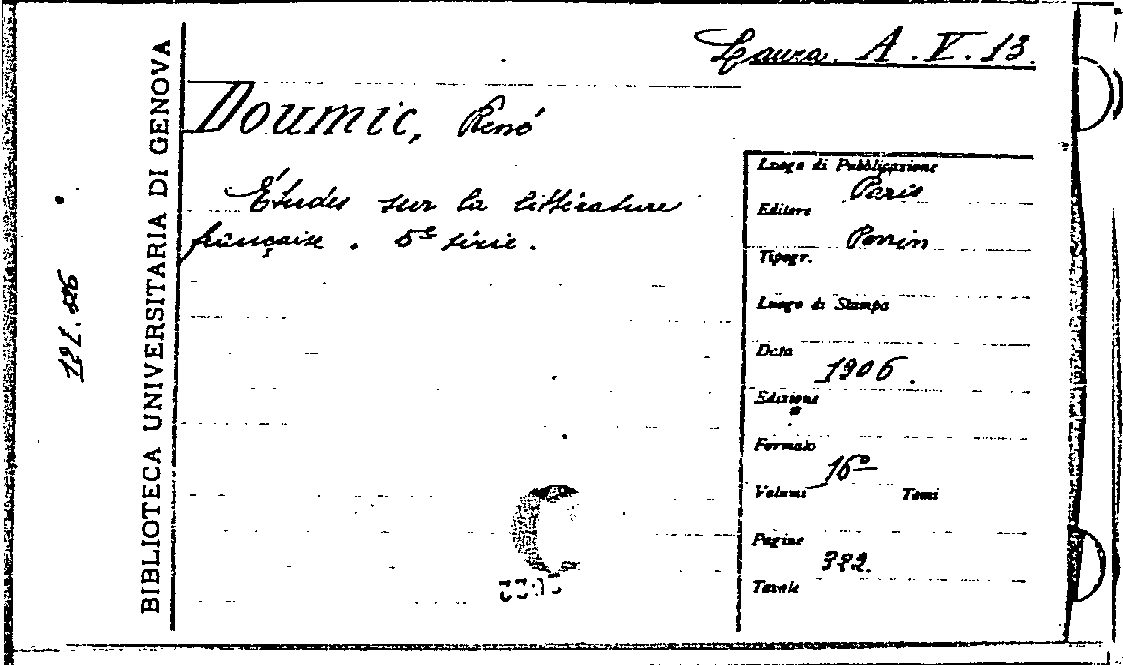 Laura. A. V. 13.
Doumic, René
Études sur la littérature
française. 5e série.
BIBLIOTECA UNIVERSITARIA DI GENOVA
Luogo di Pubblicazione
Paris
Editore
Perrin
Tipogr.
Luogo di Stampa
Data
1906.
Edizione
Formato
16º
Volumi Tomi
Pagine
Tavole